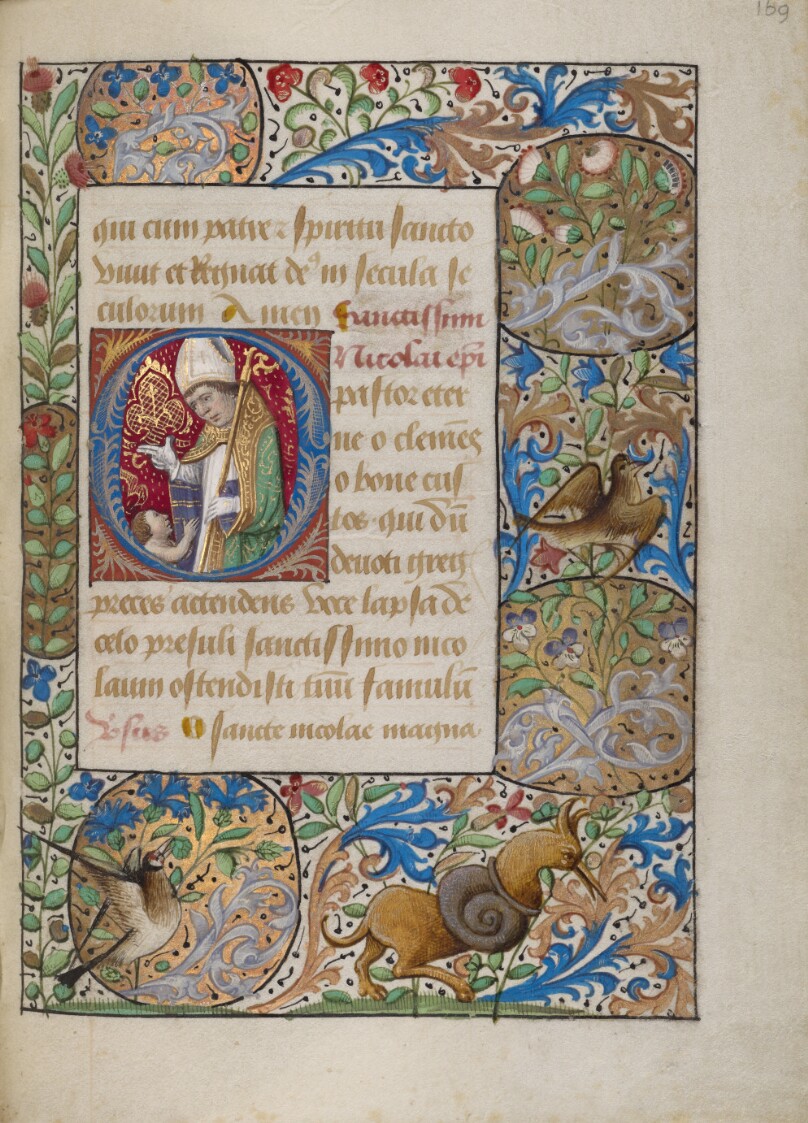 159
qui cum patre ⁊ spiritu sancto
viuit et Regnat de⁹ in secula se
culorum Amen Sanctissim
Nicolai ep̄i
pastor eter
ne o clemēs
o bone cus
tos qui dū
deuoti greg
preces attendens voce lapsa de
celo presuli sanctissimo nico
laum ostendisti tuū famulū
v̄sus O sancte nicolae magna